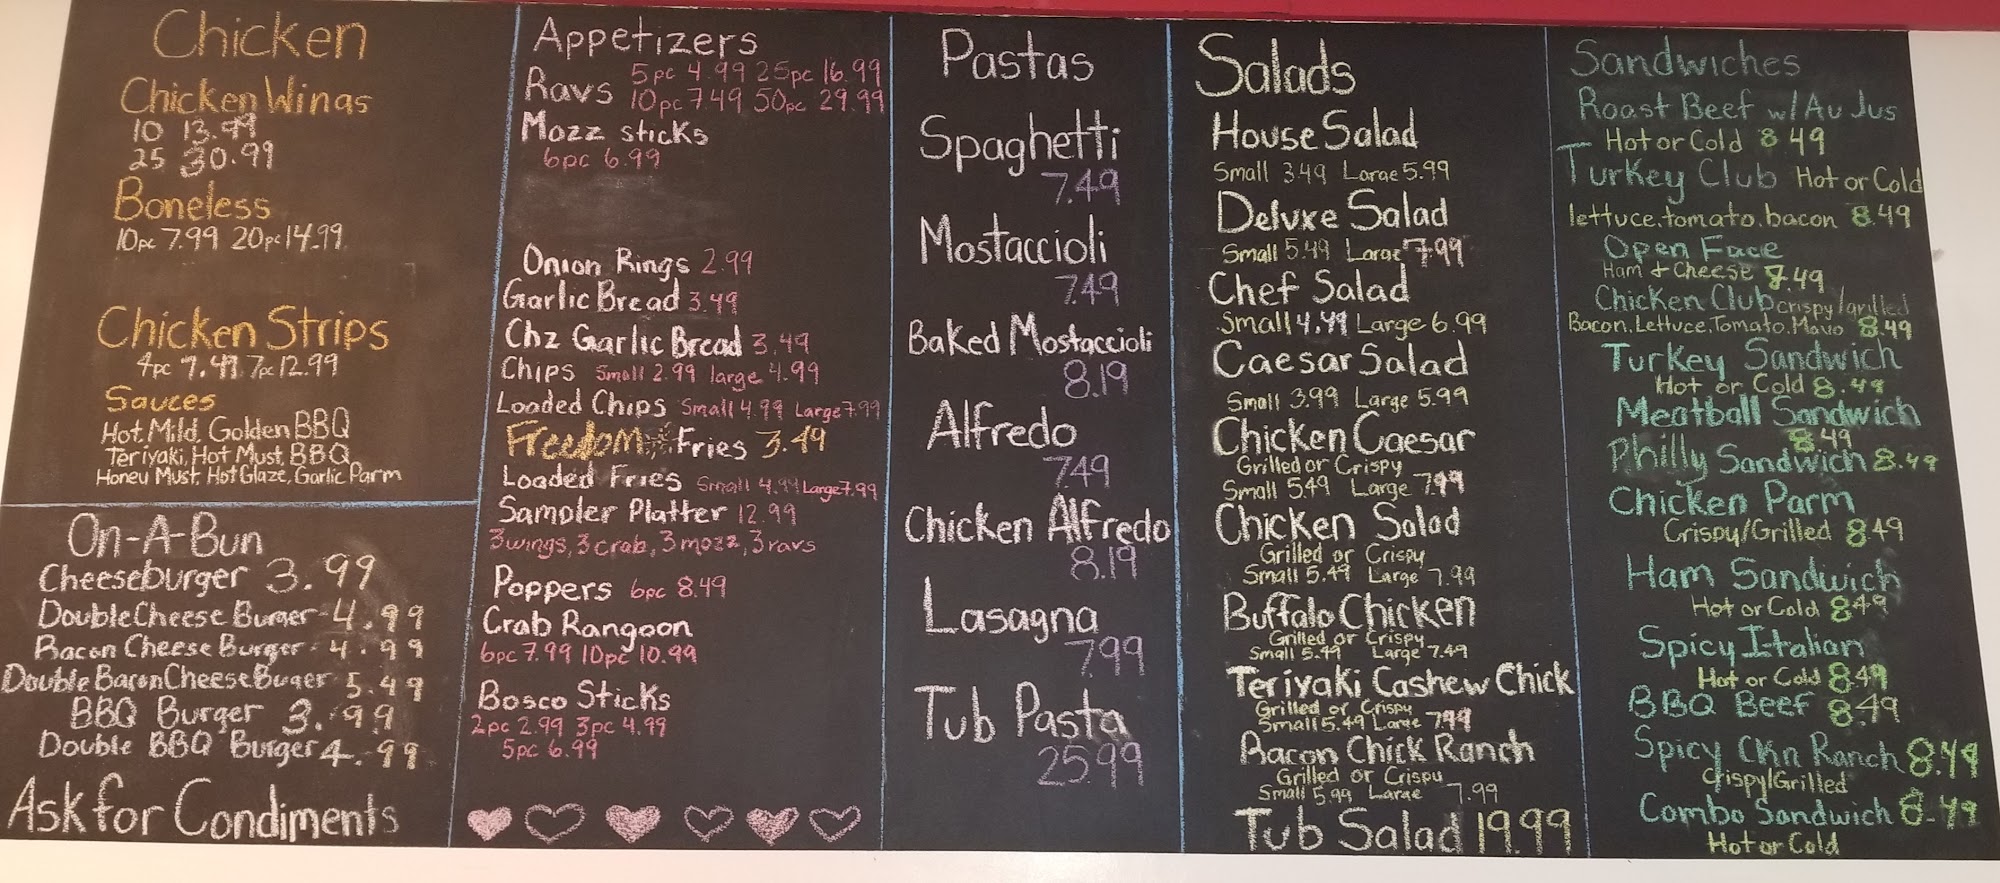 Chicken
Chicken Wings
10 13.99
25 30.99
Boneless
10pc 7.99 20pc 14.99
Chicken Strips
4pc 7.49 7pc 12.99
Sauces
Hot, Mild, Golden BBQ
Teriyaki, Hot Must, BBQ
Honey Must, Hot Glaze, Garlic Parm
On-A-Bun
Cheeseburger 3.99
Double Cheese Burger - 4.99
Bacon Cheese Burger - 4.99
Double Bacon Cheese Burger 5.49
BBQ Burger 3.99
Double BBQ Burger 4.99
Ask for Condiments
Appetizers
Ravs 5pc 4.99 25pc 16.99
10pc 7.49 50pc 29.99
Mozz sticks
6pc 6.99
Onion Rings 2.99
Garlic Bread 3.49
Chz Garlic Bread 3.49
Chips Small 2.99 large 4.99
Loaded Chips Small 4.99 Large 7.99
Freedom Fries 3.49
Loaded Fries Small 4.99 Large 7.99
Sampler Platter 12.99
3 wings, 3 crab, 3 mozz, 3 ravs
Poppers 6pc 8.49
Crab Rangoon
6pc 7.99 10pc 10.99
Bosco Sticks
2pc 2.99 3pc 4.99
5pc 6.99
Pastas
Spaghetti
7.49
Mostaccioli
7.49
Baked Mostaccioli
8.19
Alfredo
7.49
Chicken Alfredo
8.19
Lasagna
7.99
Tub Pasta
25.99
Salads
House Salad
Small 3.49 Large 5.99
Deluxe Salad
Small 5.49 Large 7.99
Chef Salad
Small 4.49 Large 6.99
Caesar Salad
Small 3.99 Large 5.99
Chicken Caesar
Grilled or Crispy
Small 5.49 Large 7.99
Chicken Salad
Grilled or Crispy
Small 5.49 Large 7.99
Buffalo Chicken
Grilled or Crispy
Small 5.49 Large 7.49
Teriyaki Cashew Chick
Grilled or Crispy
Small 5.49 Large 7.99
Bacon Chick Ranch
Grilled or Crispy
Small 5.99 Large 7.99
Tub Salad 19.99
Sandwiches
Roast Beef w/Au Jus
Hot or Cold 8.49
Turkey Club Hot or Cold
lettuce.tomato.bacon 8.49
Open Face
Ham & Cheese 7.49
Chicken Club crispy/grilled
Bacon.Lettuce.Tomato.Mayo 8.49
Turkey Sandwich
Hot or Cold 8.49
Meatball Sandwich
8.49
Philly Sandwich 8.49
Chicken Parm
Crispy/Grilled 8.49
Ham Sandwich
Hot or Cold 8.49
Spicy Italian
Hot or Cold 8.49
BBQ Beef 8.49
Spicy Ckn Ranch 8.49
Crispy/Grilled
Combo Sandwich 8.49
Hot or Cold